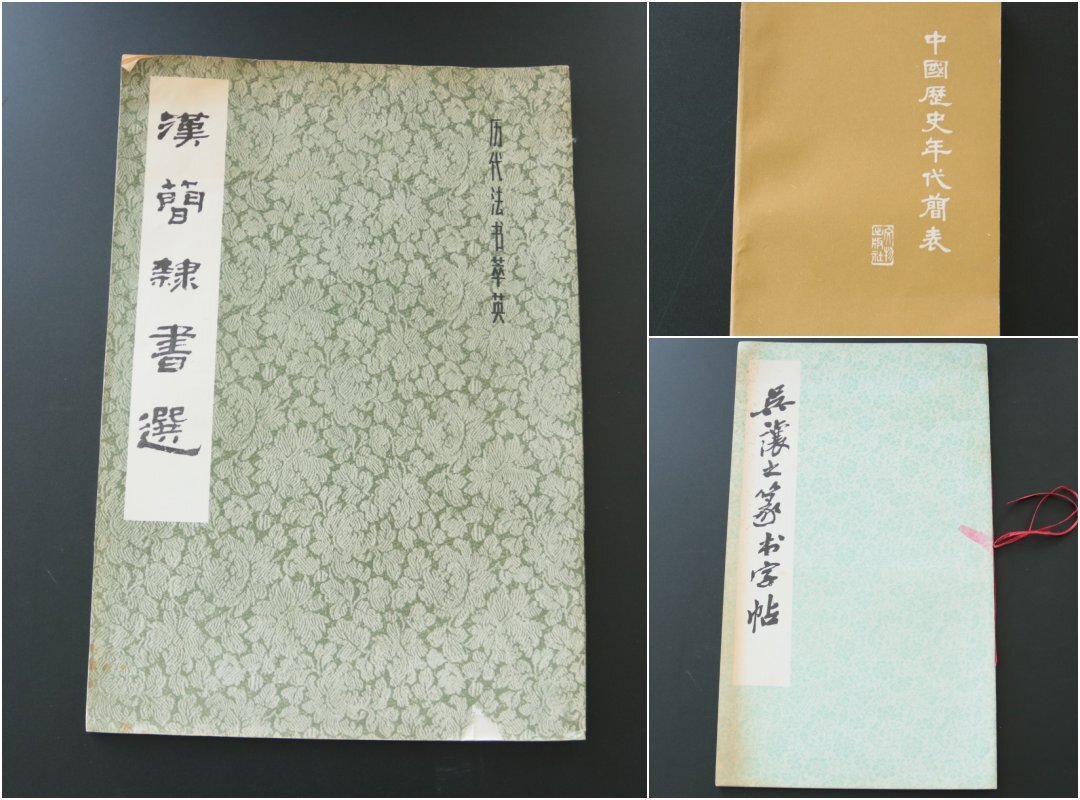 漢簡隸書選
历代法书萃英
中國歷史年代簡表
文物出版社
吴让之篆书字帖